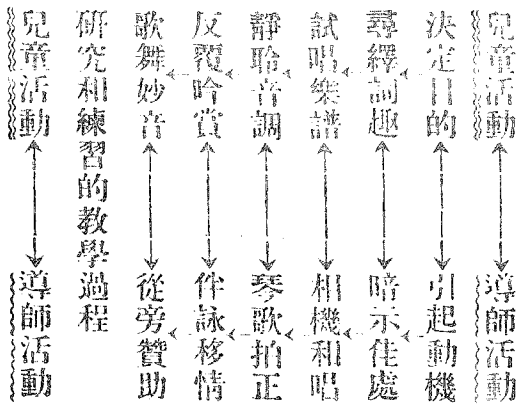 兒童活動 導師活動
決定目的 引起動機
尋繹詞趣 暗示佳處
試唱樂譜 相機和唱
靜聆音調 琴歌拍正
反覆吟賞 伴詠移情
歌舞妙音 從旁贊助
研究和練習的教學過程
兒童活動 導師活動